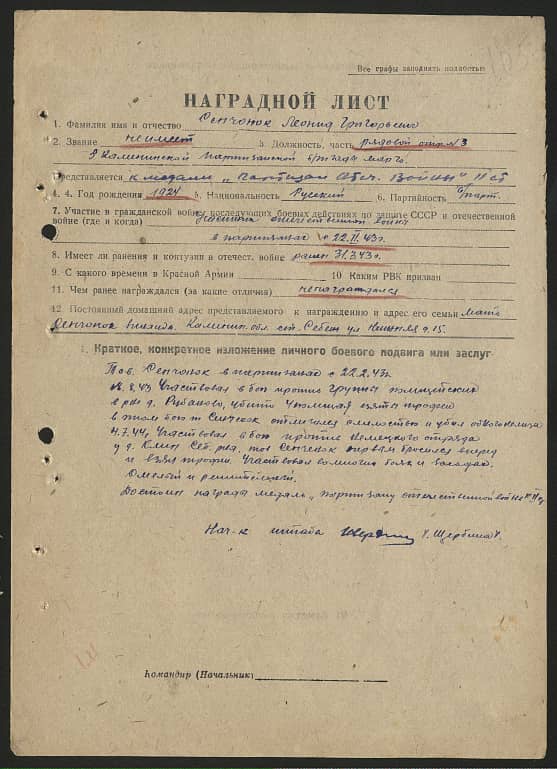 Все графы заполнять полностью
НАГРАДНОЙ ЛИСТ
1. Фамилия имя и отчество Сенчонок Леонид Григорьевич
2. Звание не имеет 3 Должность, часть рядовой отр. №3
Калининской партизанской бригады
Представляется к медали „Партизан Отеч. Войны" II ст
4. 4. Год рождения 1924 5. Национальность Русский 6. Партийность б/парт.
7. Участие в гражданской войне, последующих боевых действиях по защите СССР и отечественной
войне (где и когда) Отечественная война
в партизанах с 22.II.43г.
8. Имеет ли ранения и контузии в отечест. войне ранен
9. С какого времени в Красной Армии 10 Каким РВК призван
11. Чем ранее награждался (за какие отличия) не награждался
12. Постоянный домашний адрес представляемого к награждению и адрес его семьи мать
Сенчонок Калинин. обл. ст. Себеж ул
1. Краткое, конкретное изложение личного боевого подвига или заслуг
Тов. Сенчонок в партизанах с 22.2.43г.
8.43 Участвовал в бою против группы полицейских
в р-не д. Рубаново, убито взяты трофеи
в этом бою т. Сенчонок отличился смелостью и убил одного немца
4.7.44, Участвовал в бою против немецкого отряда
у д. Клин Себ. р-на, тов Сенчонок первым бросился вперед
и взял трофеи. Участвовал во многих боях и засадах.
Смелый и решительный.
Достоин награды медаль „партизану отечественной войны" II ст
Нач-к штаба /Щербина/.
Командир (Начальник)